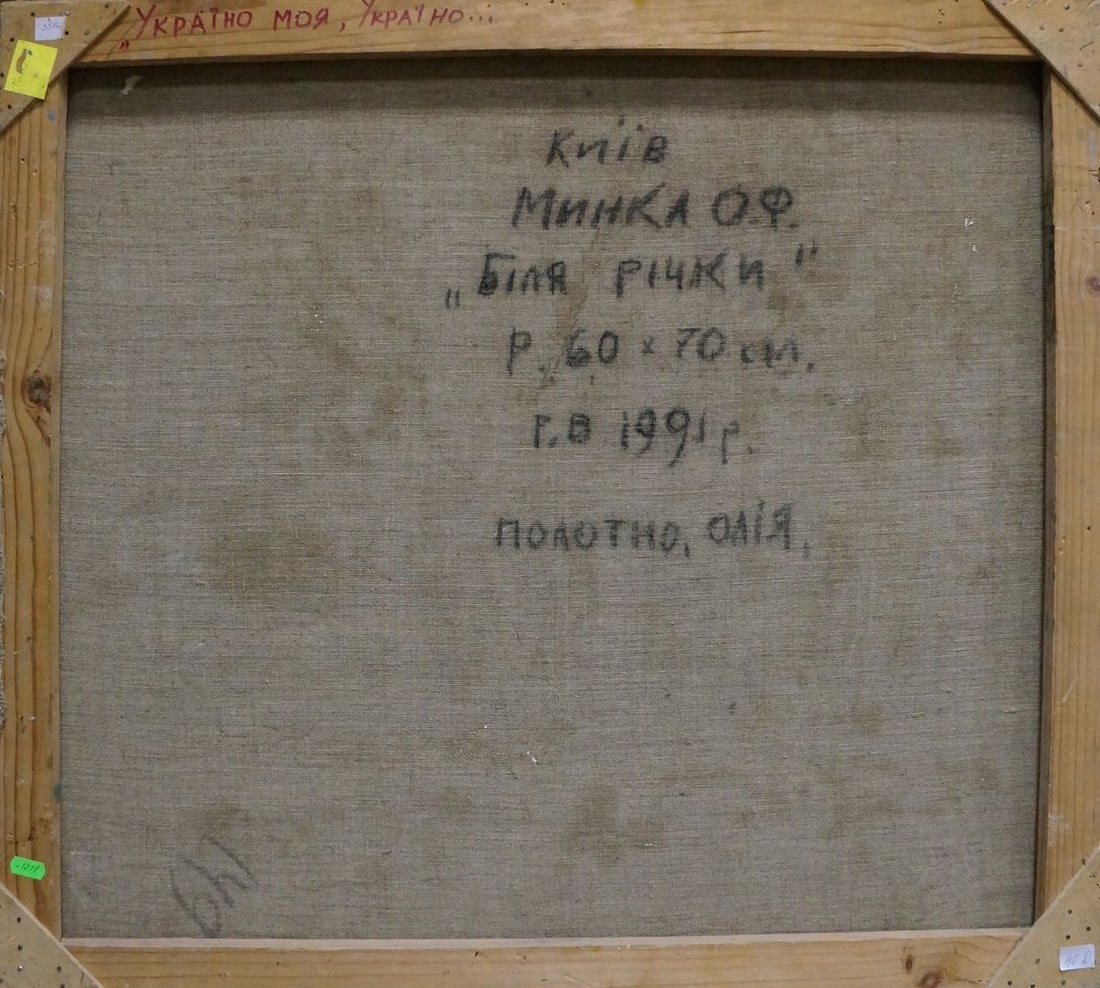 „Україно моя, Україно...
Київ
Минка О.Ф.
„Біля річки"
Р. 60 x 70 см.
Г.В 1991 р.
полотно, олія.
149